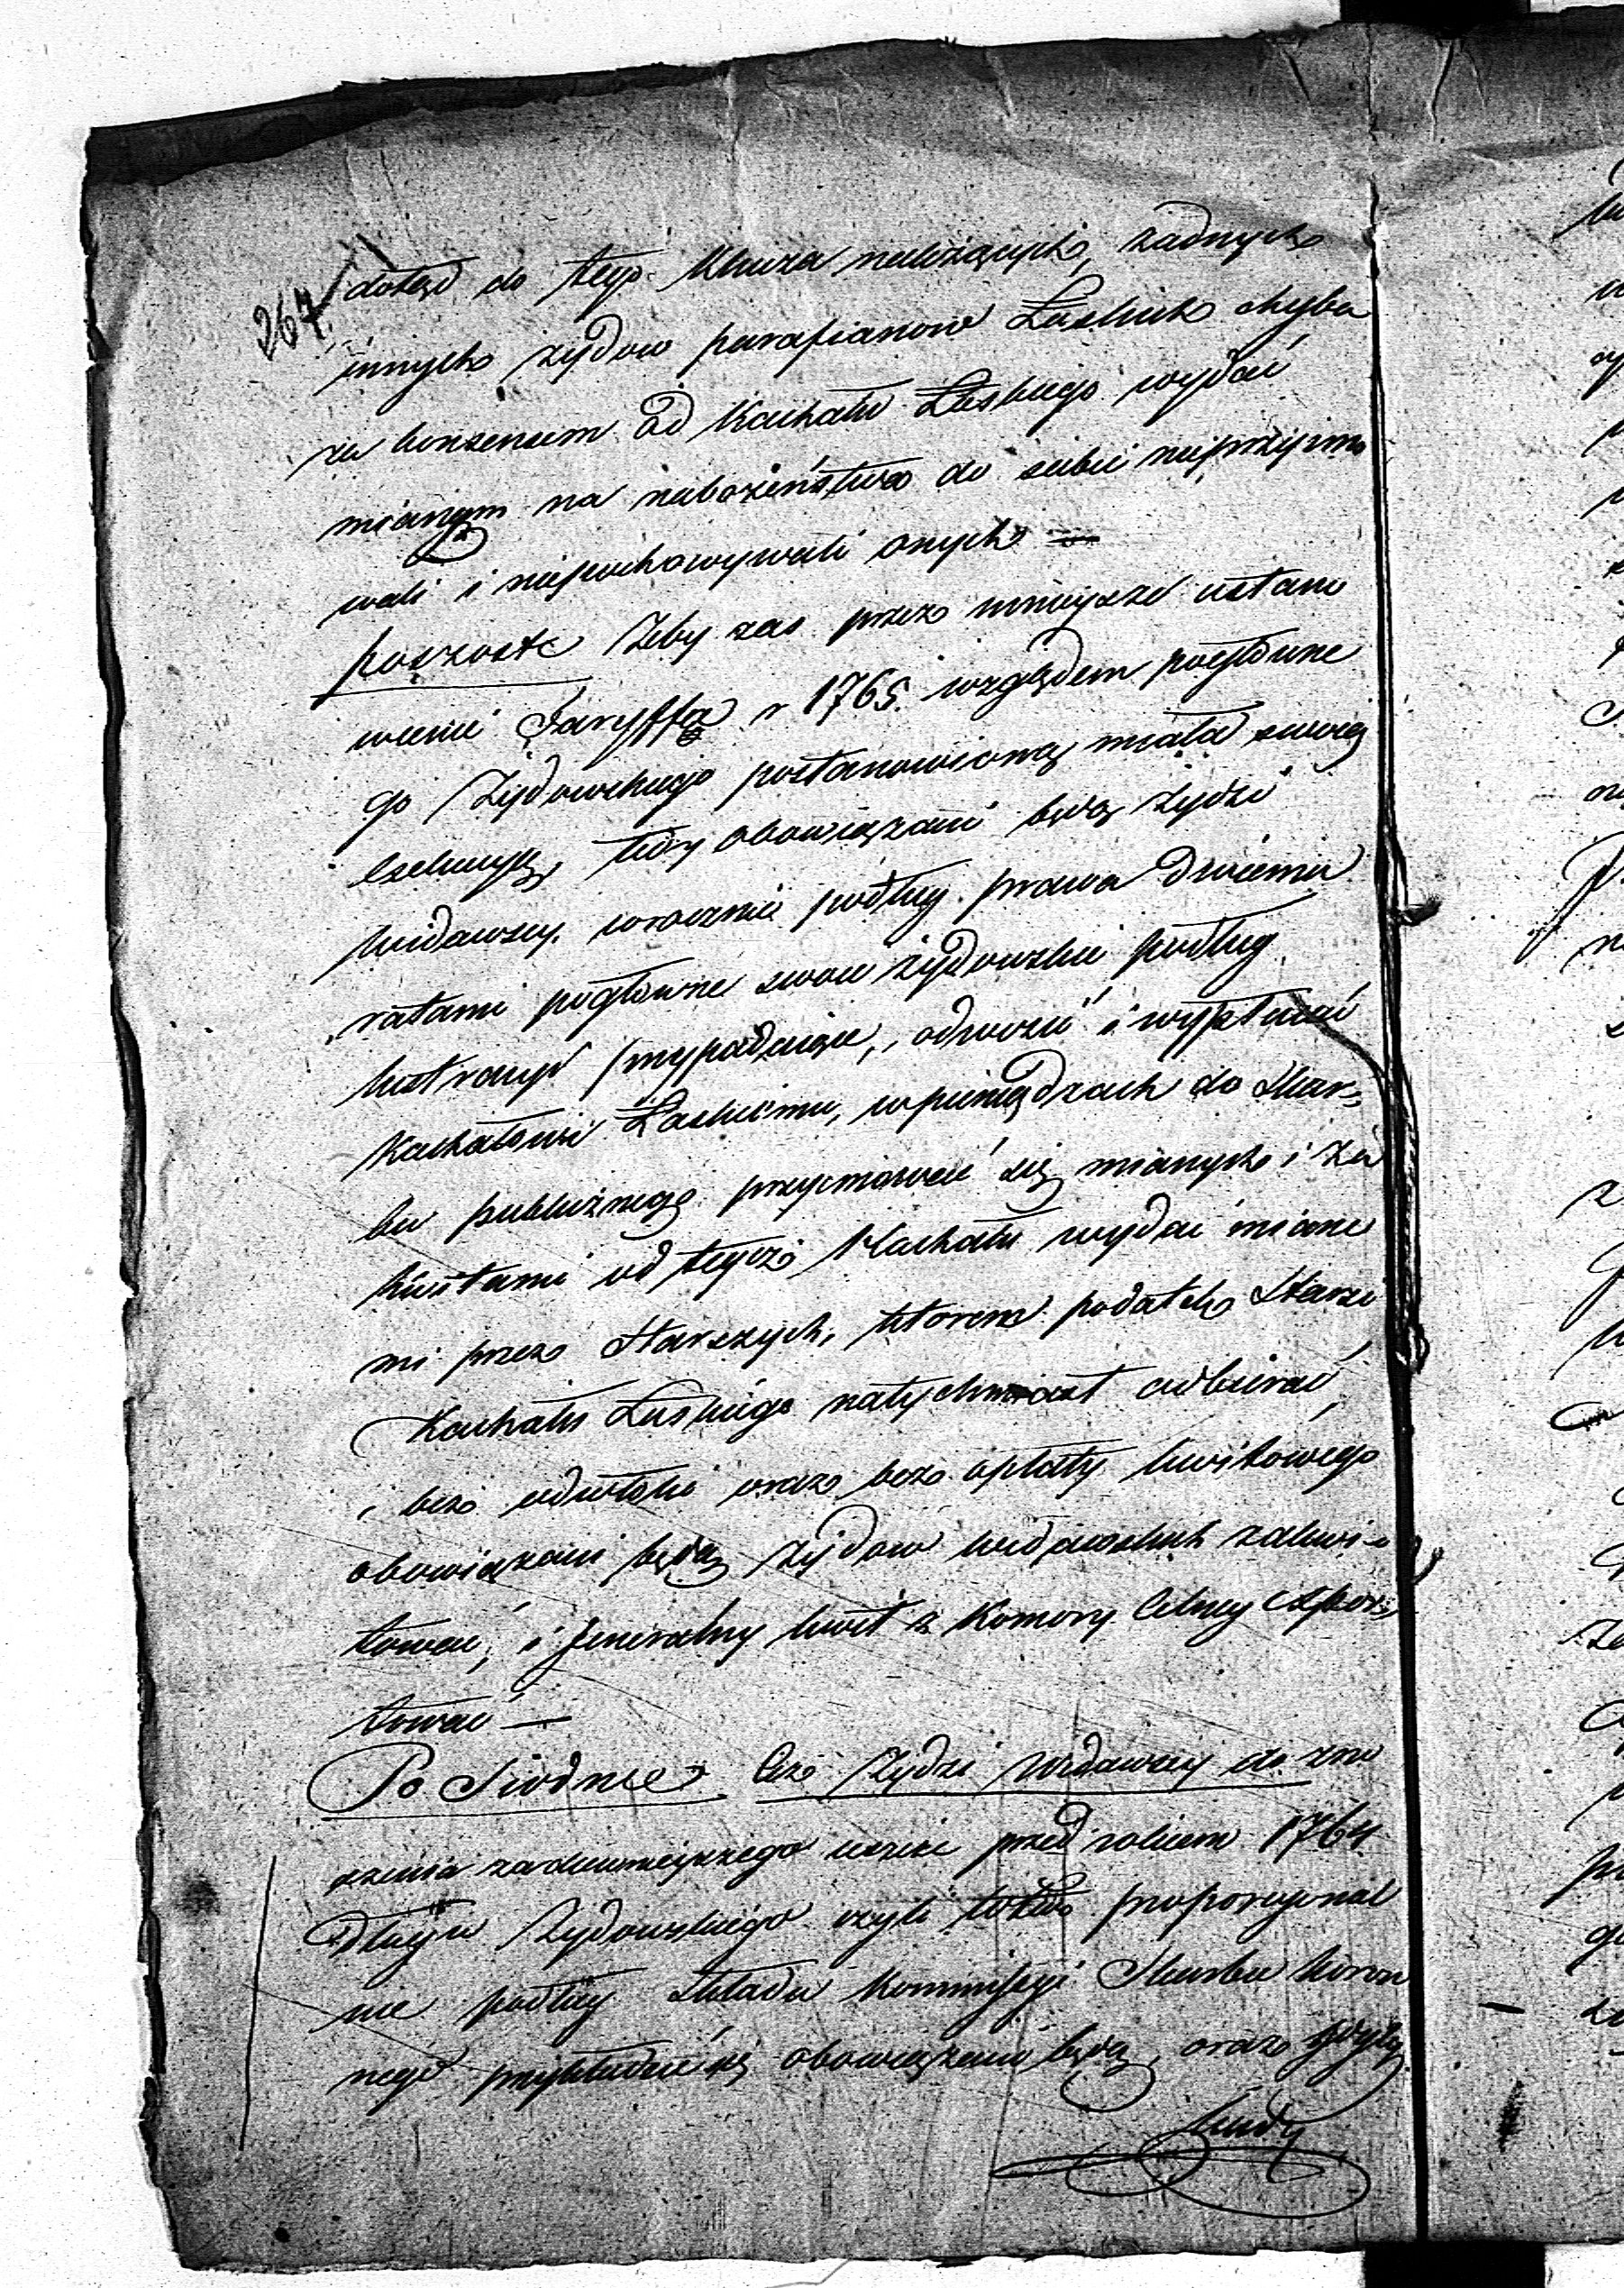 267
dotąd do tego Klucza należących, żadnych
innych żydow parafianow Łaskich chyba
za konsensem od Kachału Łaskiego wydać
mianym na nabożeństwo do siebie nieprzyimo
wali i niepochowywali onych —
poszoste Żeby zas przez ninieysze ustano
wienie Taryffa r 1765. względem pogłowne
go Żydowskiego postanowioną miała swoią
exekucyą, tedy obowiązani będą żydzi
widawscy corocznie podług prawa dwiema
ratami pogłowne swoie żydowskie podług
lustracyi wypadaiące, odwozić i wypłacać
Kachałowi Łaskiemu, w pieniądzach do Skar=
bu publicznego przyimować się mianych i za
kwitami od tegoż Kachału wydać miane
mi przez Starszych, ktoren podatek Starsi
Kachału Łaskiego natychmiast odbierać
i bez odwłoki oraz bez opłaty kwitowego
obowiązani będą żydow widawskich zakwi=
tować, i generalny kwit z Komory Celney expor=
tować —
Po Siodme Ciż Żydzi widawscy do zno
szenia zadawnieyszego ieszcze przed rokiem 1764
Długu Żydowskiego czyli proporcyonal
nie podług składu Kommissyi Skarbu Koron
nego przykładać się obowiązani będą, oraz gdyby